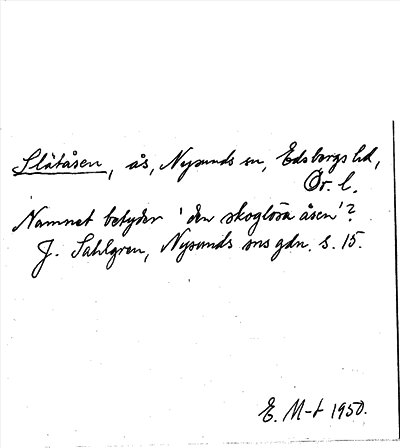 Slätåsen, ås, Nysunds sn, Edsbergs hd,
Ör. l.
Namnet betyder 'den skoglösa åsen'?
J. Sahlgren, Nysunds sns gdn. s. 15.
E. M-t 1950.